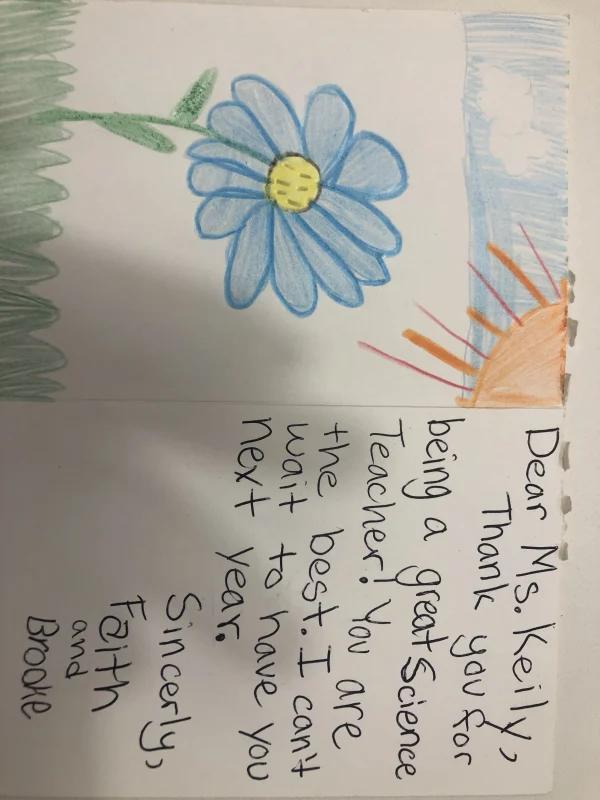 Dear Ms. Keily,
Thank you for
being a great Science
Teacher! You are
the best. I can't
wait to have you
next year.
Sincerly,
Faith
and
Brooke